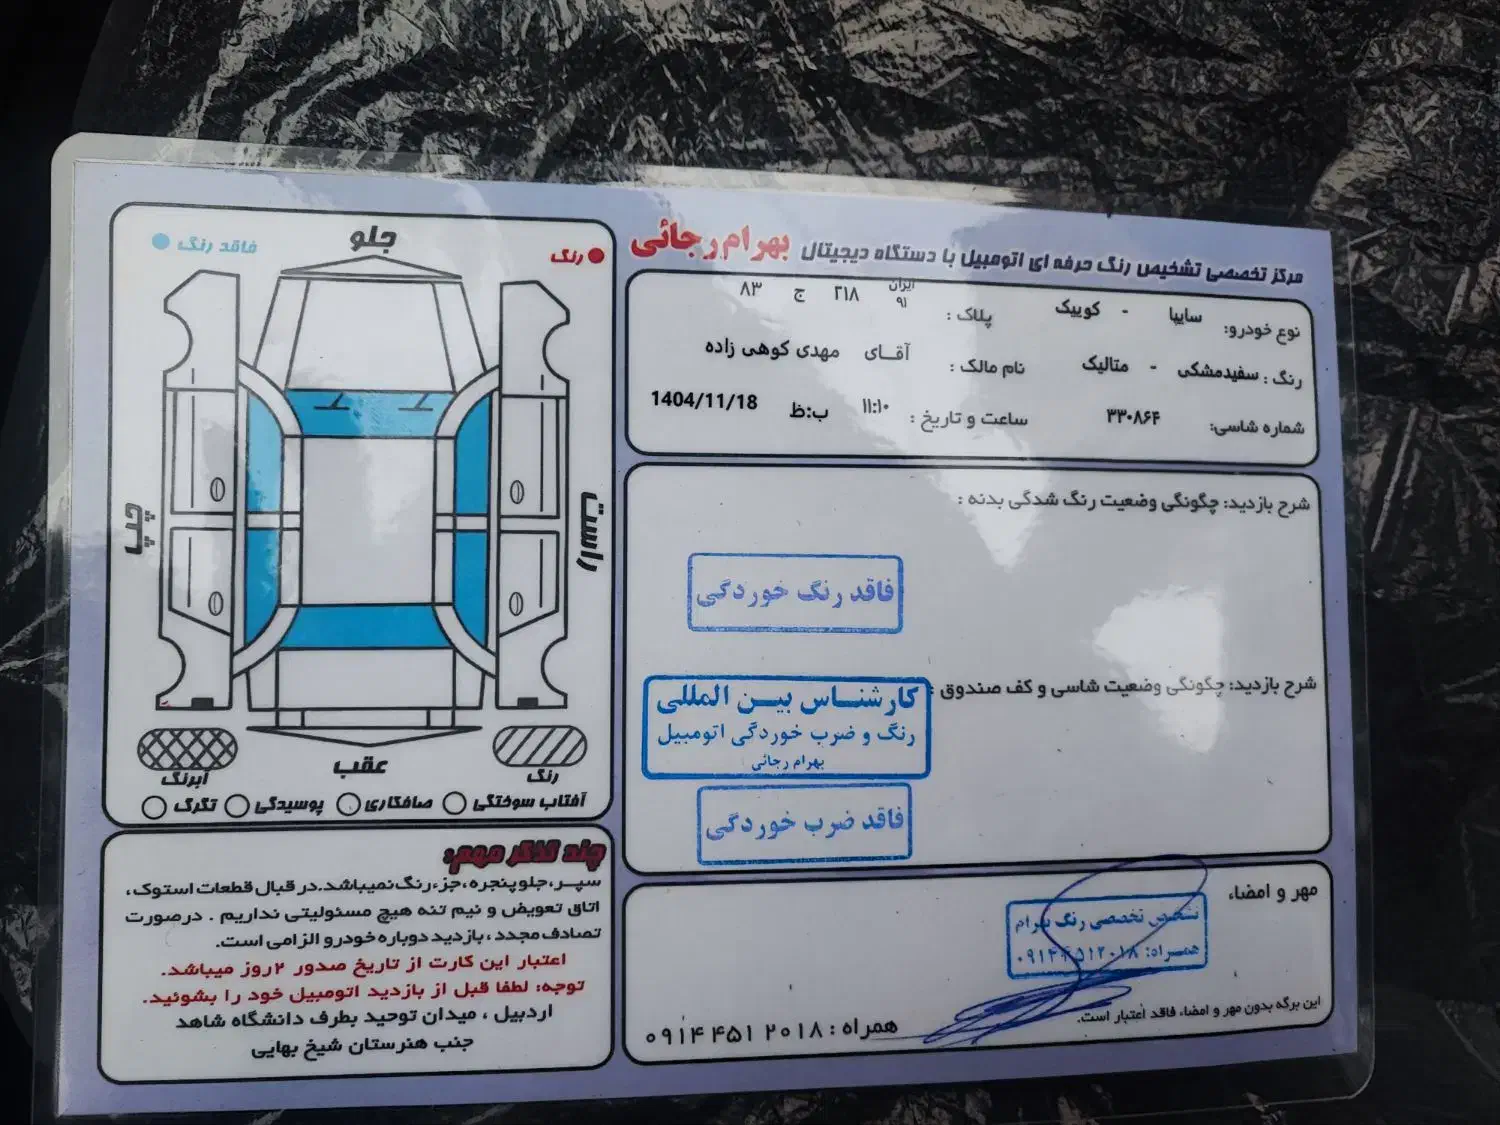 مرکز تخصصی تشخیص رنگ حرفه ای اتومبیل با دستگاه دیجیتال بهرام رجائی
نوع خودرو: سایپا - کوییک
پلاک : ایران ۹۱ ۲۱۸ ج ۸۳
رنگ : سفیدمشکی - متالیک
نام مالک : آقـای مهدی کوهی زاده
شماره شاسی: ۳۳۰۸۶۴
ساعت و تاریخ : ۱۱:۱۰ ب:ظ 1404/11/18
شرح بازدید: چگونگی وضعیت رنگ شدگی بدنه :
فاقد رنگ خوردگی
شرح بازدید: چگونگی وضعیت شاسی و کف صندوق :
کارشنـاس بیـن المللی
رنگ و ضرب خوردگی اتومبیل
بهرام رجائی
فاقد ضرب خوردگی
مهر و امضاء
تشخیص تخصصی رنگ بهرام
همـراه: ۰۹۱۴۴۵۱۲۰۱۸
این برگه بدون مهر و امضاء، فاقد اعتبار است.
همراه : ۰۹۱۴ ۴۵۱ ۲۰۱۸
رنگ
فاقد رنگ
جلو
راست
چپ
عقب
رنگ
آبرنگ
آفتاب سوختگی
صافکاری
پوسیدگی
تگرگ
چند تذکر مهم:
سپـر، جلو پنجره، جزء رنگ نمیباشد. در قبال قطعات استوک،
اتاق تعویض و نیم تنه هیچ مسئولیتی نداریم . درصورت
تصادف مجدد، بازدید دوباره خودرو الزامی است.
اعتبار این کارت از تاریخ صدور ۲ روز میباشد.
توجه: لطفا قبل از بازدید اتومبیل خود را بشوئید.
اردبیل ، میدان توحید بطرف دانشگاه شاهد
جنب هنرستان شیخ بهایی